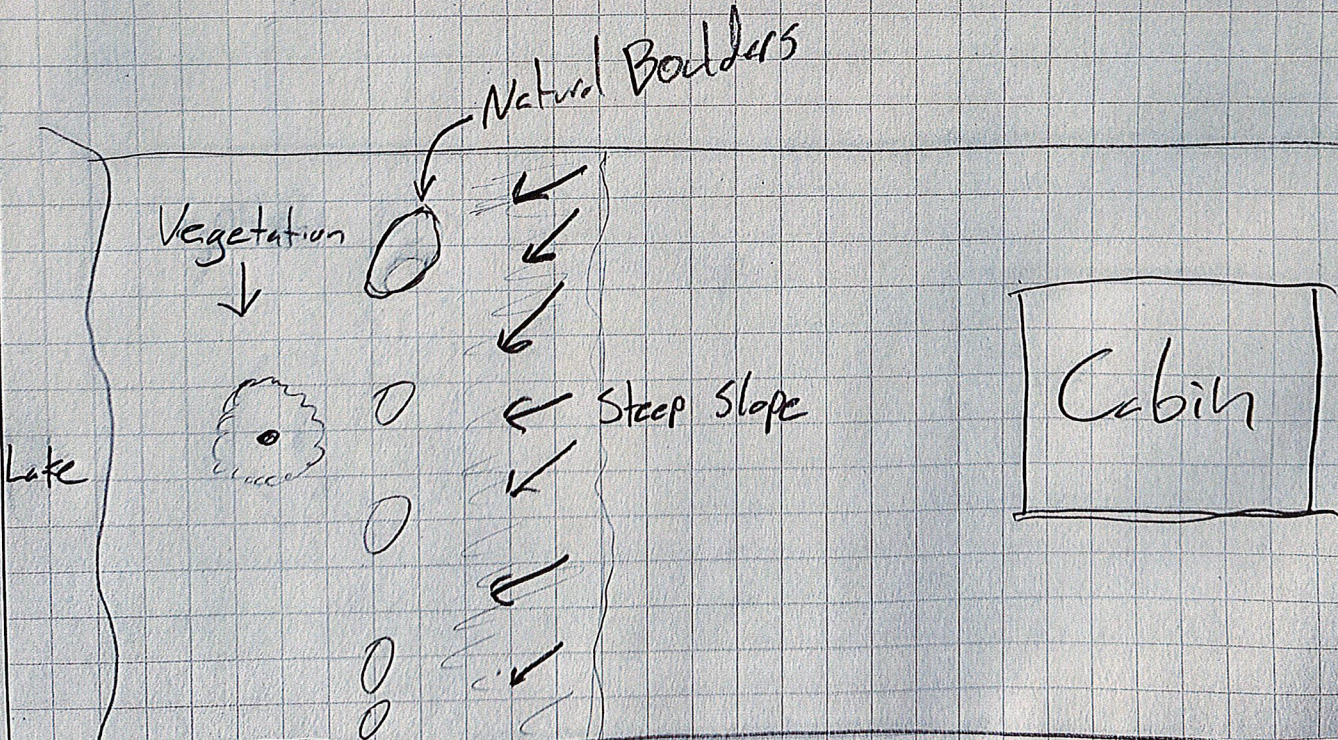 Natural Boulders
Vegetation
Steep Slope
Cabin
Lake